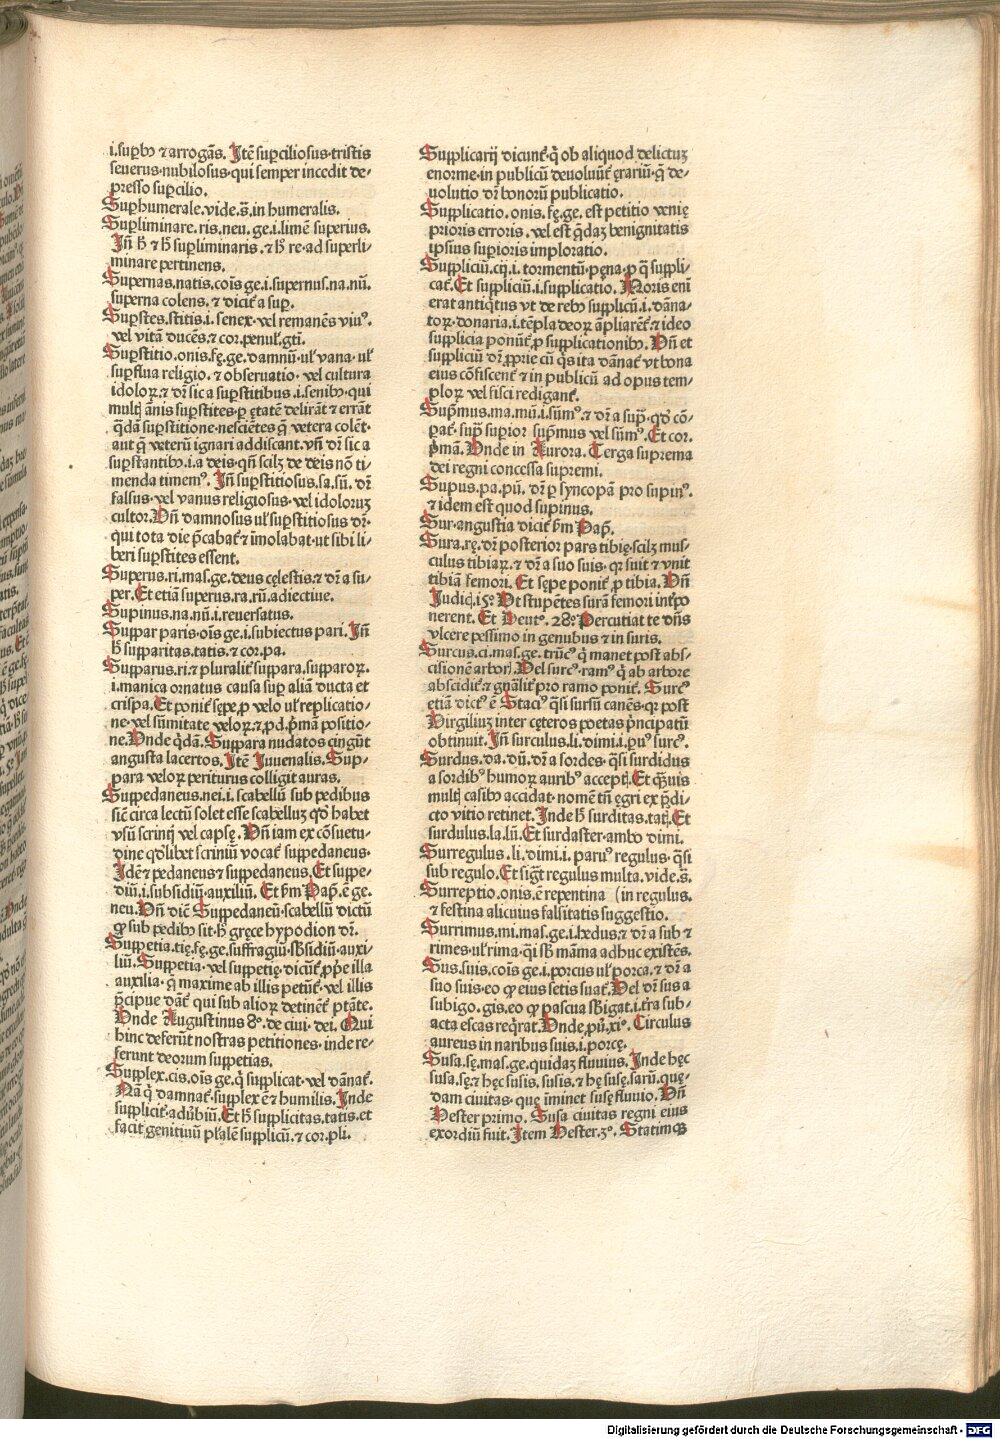 i.sup̱bꝰ ⁊ arrogãs. Itẽ sup̱ciliosus·tristis
seuerus·nubilosus·qui semper incedit de⸗
presso sup̱cilio.
Sup̱humerale.vide.s̃.in humeralis.
Sup̱liminare.ris.neu.ge.i.limẽ superius.
Iñ h̃ ⁊ h̃ sup̱liminaris.⁊ h̃ re·ad superli⸗
minare pertinens.
Supernas.natis.cõis ge.i.supernus.na.nũ.
superna colens.⁊ dicit̃ a sup̱.
Sup̱stes.stitis.i.senex·vel remanẽs viuꝰ.
vel vitã ducẽs.⁊ cor.penul̃.gti.
Sup̱stitio.onis.fę.ge.damnũ·ul̃ vana·ul̃
sup̱flua religio.⁊ obseruatio·vel cultura
idoloꝝ.⁊ dr̃ sic a sup̱stitibus.i.senibꝰ·qui
multꝭ ãnis sup̱stites·p̱ ętatẽ delirãt ⁊ errãt
q̃dã sup̱stitione·nesciẽtes q̃ vetera colẽt·
aut q̃ veterũ ignari addiscant.vñ dr̃ sic a
sup̱stantibꝰ.i.a deis·qñ scilꝫ de deis nõ ti⸗
menda timemꝰ. Iñ sup̱stitiosus.sa.sũ. dr̃
falsus·vel vanus religiosus·vel idoloruꝫ
cultor.Vñ damnosus ul̃ sup̱stitiosus dr̃·
qui tota die p̃cabat̃ ⁊ imolabat·ut sibi li⸗
beri sup̱stites essent.
Superus.ri.mas.ge.deus cęlestis.⁊ dr̃ a su⸗
per.Et etiã superus.ra.rũ.adiectiue.
Supinus.na.nũ.i.reuersatus.
Suppar paris·oĩs ge.i.subiectus pari. Iñ
h̃ supparitas.tatis.⁊ cor.pa.
Supparus.ri.⁊ pluralit̃ suppara.supparoꝝ.
i.manica ornatus causa sup̱ aliã ducta et
crispa.Et ponit̃ sępe·ꝓ velo ul̃ replicatio⸗
ne·vel sũmitate veloꝝ.⁊ ꝓd.p̃mã positio⸗
ne.Vnde q̃dã. Suppara nudatos cingũt
angusta lacertos. Itẽ Iuuenalis. Sup⸗
para veloꝝ periturus colligit auras.
Suppedaneus.nei.i.scabellũ sub pedibus
siẽ circa lectũ solet esse scabelluꝫ qď habet
vsũ scrinij vel capsę. Vñ iam ex cõsuetu⸗
dine qďlibet scriniũ vocat̃ suppedaneus·
Idẽ ⁊ pedaneus ⁊ suppedaneus.Et suppe⸗
diũ.i.subsidiũ·auxiliũ. Et ẽm Pap̃.ẽ ge.
neu.Vñ dic̃ Suppedaneũ·scabellũ dictũ
ꝙ sub pedibꝰ sit·h̃ gręce hypodion dr̃.
Suppetia.tię.fę.ge.suffragiũ·sb̃sidiũ·auxi⸗
liũ.Suppetia·vel suppetię·dicũt̃ ꝓp̃e illa
auxilia·q̃ maxime ab illis petũt̃·vel illis
p̃cipue dãt̃ qui sub alioꝝ detinẽt̃ ptãte.
Vnde Augustinus 8º.de ciui·dei. Qui
hinc deferũt nostras petitiones·inde re⸗
ferunt deorum suppetias.
Supplex.cis.oĩs ge.q̃ supplicat·vel dãnat̃.
Nã q̃ damnat̃·supplex ẽ ⁊ humilis. Inde
supplicit̃·aďbiũ.Et h̃ supplicitas.tatis.et
facit genitiuũ pl̃alẽ supplicũ.⁊ cor.pli.
Supplicarij dicunt̃·q̃ ob aliquod delictuꝫ
enorme·in publicũ deuoluũt̃ ęrariũ·q̃ de⸗
uolutio dr̃ bonorũ publicatio.
Supplicatio.onis.fę.ge. est petitio venię
prioris erroris.vel est q̃daꝫ benignitatis
ipsius sup̱ioris imploratio.
Suppliciũ.cij.i.tormentũ·pęna·ꝓ q̃ suppli⸗
cat̃.Et suppliciũ.i.supplicatio. Moris eni̇̃
erat antiq̃tus vt de rebꝰ supplicũ.i.dãna⸗
toꝝ·donaria.i.tẽpla deoꝝ ãpliarẽt̃·⁊ ideo
supplicia ponũt̃ ꝓ supplicationibꝰ. Vñ et
suppliciũ dr̃ ꝓprie cũ q̃s ita dãnat̃ vt bona
eius cõfiscent̃ ⁊ in publicũ ad opus tem⸗
ploꝝ vel fisci redigant̃.
Sup̃mus.ma.mũ.i.sũmꝰ.⁊ dr̃ a sup̃·qď cõ⸗
p̱at̃·sup̃ sup̱ior sup̃mus vel sũmꝰ.Et cor.
p̃mã. Vnde in Aurora. Terga suprema
dei regni concessa supremi.
Supus.pa.pũ. dr̃ p̱ syncopã pro supinꝰ.
⁊ idem est quod supinus.
Sur·angustia dicit̃ ẽm Pap̃.
Sura.rę.dr̃ posterior pars tibię·scilꝫ mus⸗
culus tibiaꝝ.⁊ dr̃ a suo suis·qꝛ suit ⁊ vnit
tibiã femori. Et sępe ponit̃ ꝓ tibia. Vñ
Judiq̃.15º Vt stupẽtes surã femori int̃po
nerent. Et Deutº. 28º Percutiat te dñs
vlcere pessimo in genubus ⁊ in suris.
Surcus.ci.mas.ge.trũcꝰ q̃ manet post abs⸗
cisionẽ arborꝭ.Vel surcꝰ·ramꝰ q̃ ab arbore
abscidit̃·⁊ gñalit̃ pro ramo ponit̃. Surcꝰ
etiã dictꝰ ẽ Staciꝰ q̃si sursũ canẽs·qꝛ post
Virgiliuꝫ inter cęteros poetas p̃ncipatũ
obtinuit.Iñ surculus.li.dimi.i.p̱uꝰ surcꝰ.
Surdus.da.dũ.dr̃ a sordes·q̃si surdidus
a sordibꝰ humoꝝ auribꝰ acceptꝭ.Et q̃uis
multꝭ casibꝰ accidat·nomẽ tñ ęgri ex p̃di⸗
cto vitio retinet. Inde h̃ surditas.tatꝭ.Et
surdulus.la.lũ.Et surdaster·ambo dimi.
Surregulus.li.dimi.i.paruꝰ regulus·q̃si
sub regulo.Et sig̃t regulus multa.vide.s̃.
Surreptio.onis.ẽ repentina (in regulus.
⁊ festina alicuius falsitatis suggestio.
Surrimus.mi.mas.ge.i.hędus·⁊ dr̃ a sub ⁊
rimes·ul̃ rima·q̃i sb̃ mãma adhuc existẽs.
Sus.suis.cõis ge.i.porcus ul̃ porca.⁊ dr̃ a
suo suis·eo ꝙ eius setis suat̃.Vel dr̃ sus a
subigo.gis.eo ꝙ pascua sb̃igat.i.t̃ra sub⸗
acta escas req̃rat.Vnde·p̱ũ.xiº. Circulus
aureus in naribus suis.i.porcę.
Susa.sę.mas.ge.quidaꝫ fluuius. Inde hęc
susa.sę.⁊ hęc susis.susis.⁊ hę susę.sarũ.quę⸗
dam ciuitas·que iminet susę fluuio. Vñ
Hester primo. Susa ciuitas regni eius
exordiũ fuit. Item Hester.3º. Statimqꝫ